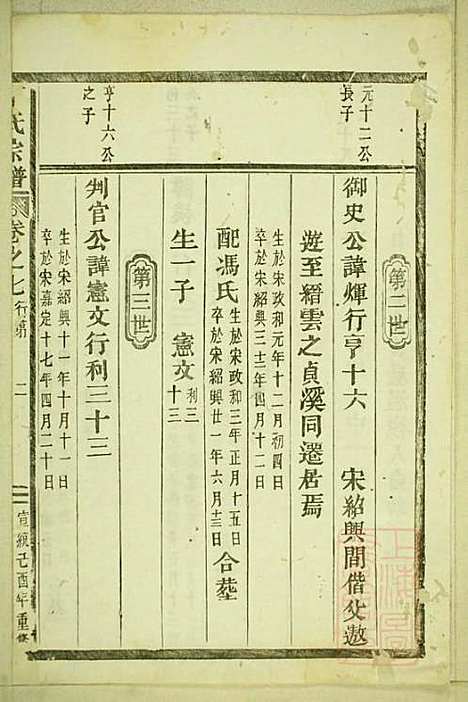 第二世
元十二公
長子
御史公諱煇行亨十六 宋紹興間偕父遨
遊至縉雲之貞溪同遷居焉
生於宋政和元年十二月初四日
卒於宋紹興三十二年四月十二日
配馮氏 生於宋政和三年正月十五日
卒於宋紹興廿一年六月十三日 合塟
生一子 憲文 利三
十三
第三世
亨十六公
之子
判官公諱憲文行利三十三
生於宋紹興十一年十月十一日
卒於宋嘉定十七年四月二十日
氏宗譜 卷之七 行第 二 宣統己酉年重修